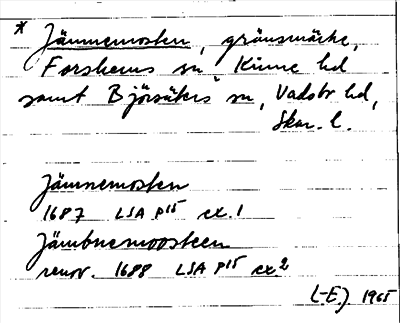 * Jämnemosten, gränsmärke,
Forshems sn Kinne hd
samt Björsäters sn, Vadsbo hd,
Skar. l.
Jämnemosten
1687 LSA P15 ex. 1
Jämbnemoosteen
renov. 1688 LSA P15 ex 2
(-E.) 1965